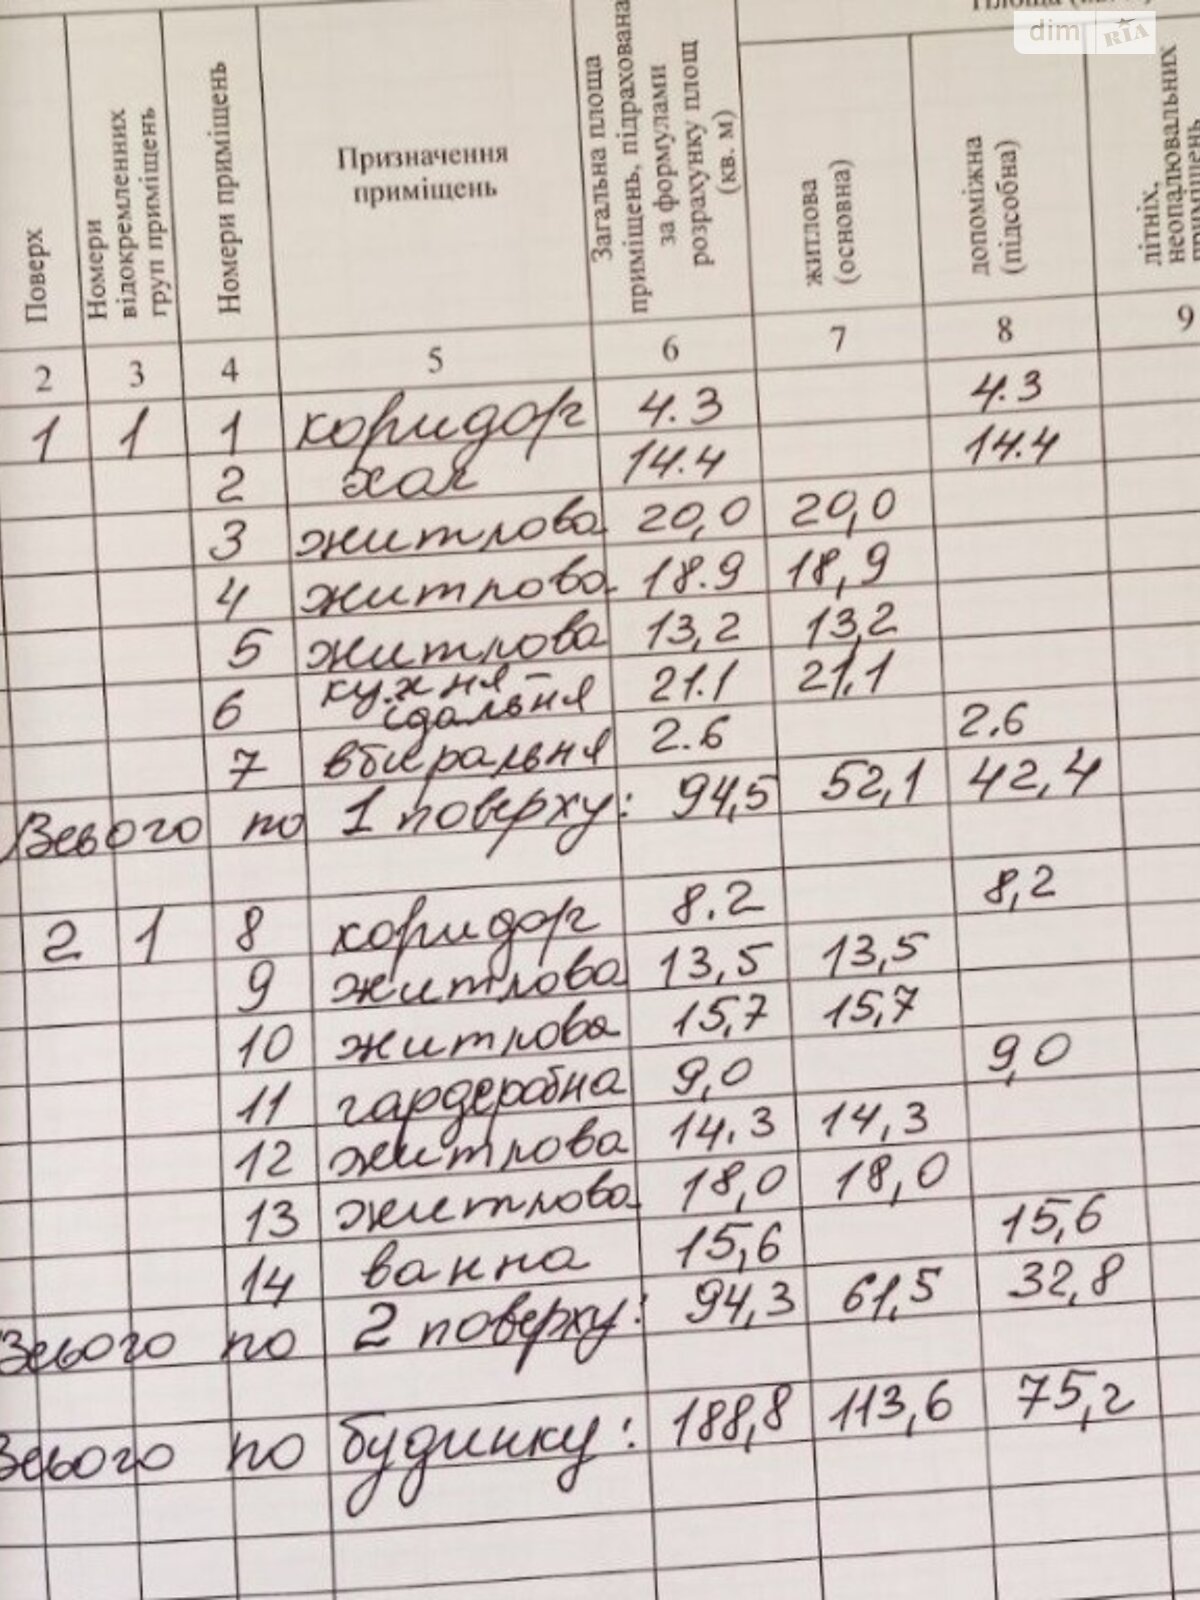 Площа (кв. м)
dim RIA
Поверх
Номери відокремленних груп приміщень
Номери приміщень
Призначення приміщень
Загальна площа приміщень, підрахована за формулами розрахунку площ (кв. м)
житлова (основна)
допоміжна (підсобна)
літніх, неопалювальних приміщень
2 3 4 5 6 7 8 9
1 1 1 коридор 4.3 4.3
2 хол 14.4 14.4
3 житлова 20,0 20,0
4 житлова 18.9 18,9
5 житлова 13,2 13,2
6 кухня - їдальня 21.1 21,1
7 вбиральня 2.6 2.6
Всього по 1 поверху: 94,5 52,1 42,4
2 1 8 коридор 8.2 8,2
9 житлова 13,5 13,5
10 житлова 15,7 15,7
11 гардеробна 9,0 9,0
12 житлова 14.3 14,3
13 житлова 18,0 18,0
14 ванна 15,6 15,6
Всього по 2 поверху: 94,3 61,5 32,8
Всього по будинку: 188,8 113,6 75,2